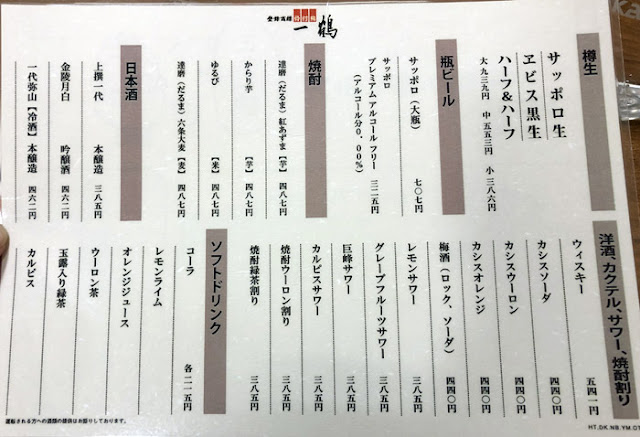 登録商標 骨付鳥
一鶴
樽生
サッポロ生
ヱビス黒生
ハーフ&ハーフ
大 九三九円 中 五五三円 小 三八六円
瓶ビール
サッポロ（大瓶） 七〇七円
サッポロ
プレミアム アルコール フリー
（アルコール分０．００％） 三二五円
焼酎
達磨（だるま）紅あずま【芋】 四八七円
からり芋 【芋】 四八七円
ゆるび 【米】 四八七円
達磨（だるま）六条大麦【麦】 四八七円
日本酒
上撰一代 本醸造 三八五円
金陵月白 吟醸酒 四六二円
一代弥山【冷酒】本醸造 四六二円
洋酒、カクテル、サワー、焼酎割り
ウィスキー 五四一円
カシスソーダ 四四〇円
カシスウーロン 四四〇円
カシスオレンジ 四四〇円
梅酒（ロック、ソーダ） 四四〇円
レモンサワー 三八五円
グレープフルーツサワー 三八五円
巨峰サワー 三八五円
カルピスサワー 三八五円
焼酎ウーロン割り 三八五円
焼酎緑茶割り 三八五円
ソフトドリンク
コーラ 各二一五円
レモンライム
オレンジジュース
ウーロン茶
玉露入り緑茶
カルピス
運転される方への酒類の提供はお断りしております。
HT.DK.NB.YM.OT